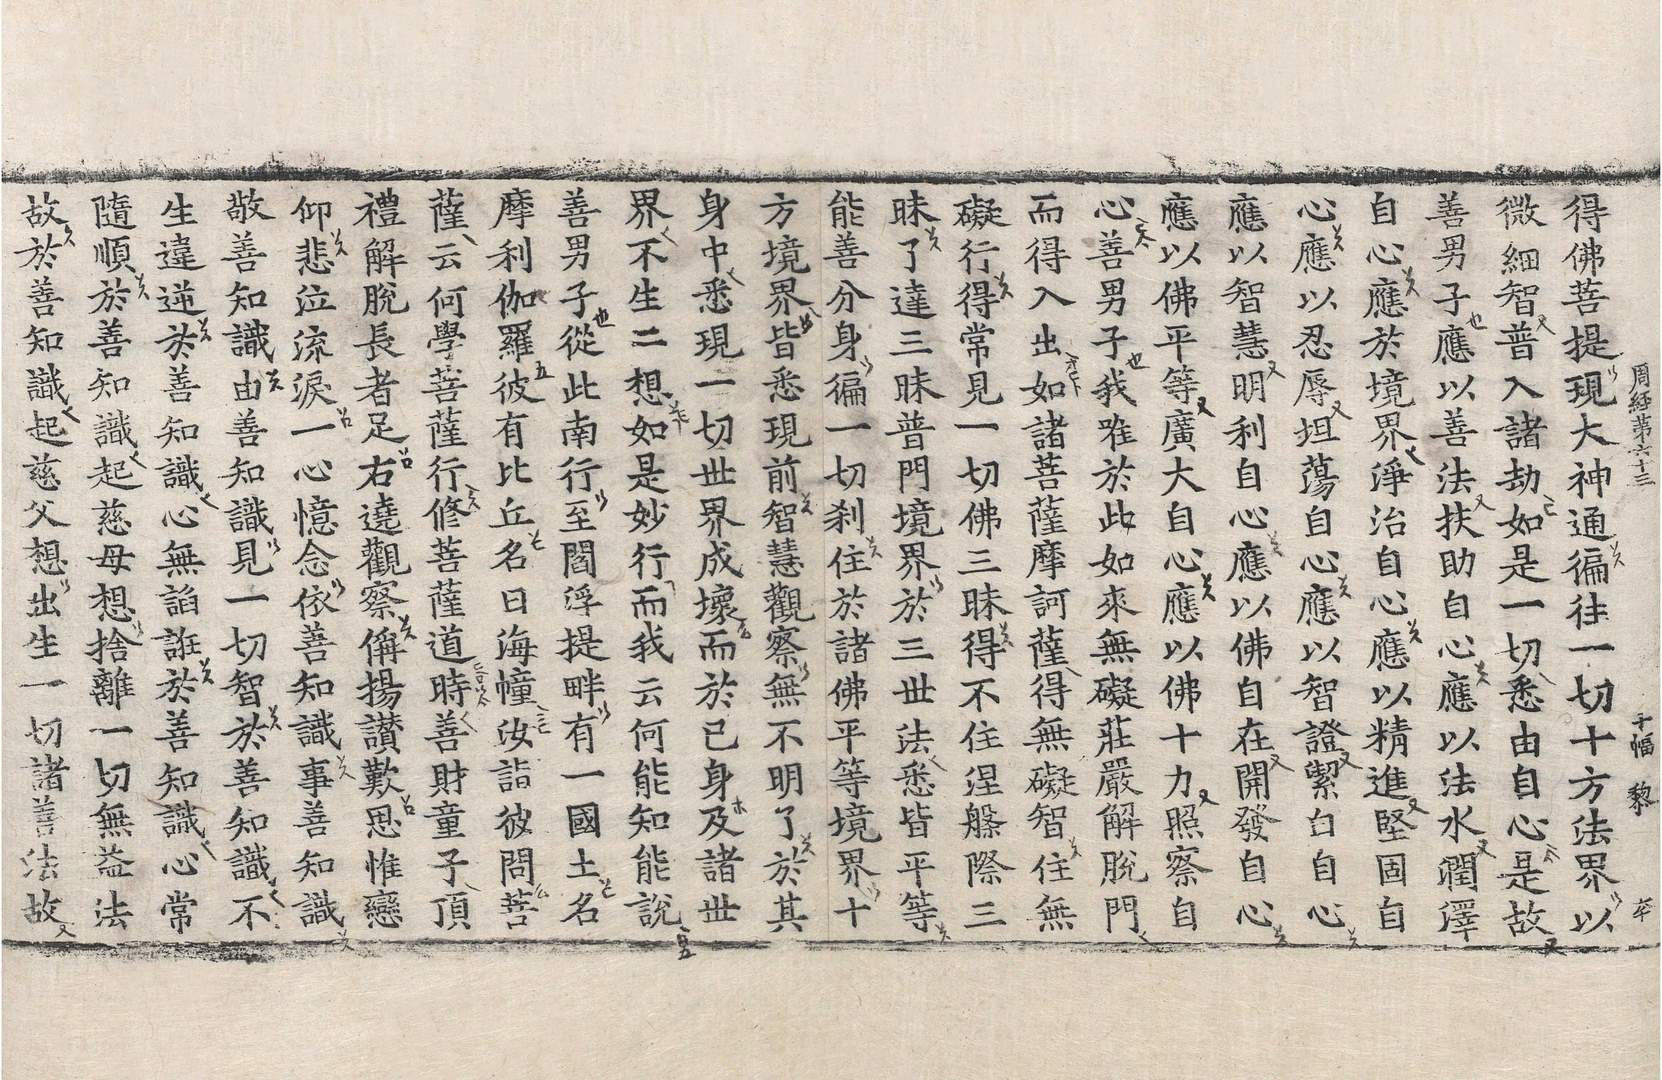 周經第六十三　十幅　黎
得佛菩提現大神通徧往一切十方法界以
微細智普入諸劫如是一切悉由自心是故
善男子應以善法扶助自心應以法水潤澤
自心應於境界淨治自心應以精進堅固自
心應以忍辱坦蕩自心應以智證絜白自心
應以智慧明利自心應以佛自在開發自心
應以佛平等廣大自心應以佛十力照察自
心善男子我唯於此如來無礙莊嚴解脫門
而得入出如諸菩薩摩訶薩得無礙智住無
礙行得常見一切佛三昧得不住涅槃際三
昧了達三昧普門境界於三世法悉皆平等
能善分身徧一切剎住於諸佛平等境界十
方境界皆悉現前智慧觀察無不明了於其
身中悉現一切世界成壞而於己身及諸世
界不生二想如是妙行而我云何能知能說
善男子從此南行至閻浮提畔有一國土名
摩利伽羅彼有比丘名曰海幢汝詣彼問菩
薩云何學菩薩行修菩薩道時善財童子頂
禮解脫長者足右遶觀察稱揚讚歎思惟戀
仰悲泣流淚一心憶念依善知識事善知識
敬善知識由善知識見一切智於善知識不
生違逆於善知識心無諂誑於善知識心常
隨順於善知識起慈母想捨離一切無益法
故於善知識起慈父想出生一切諸善法故